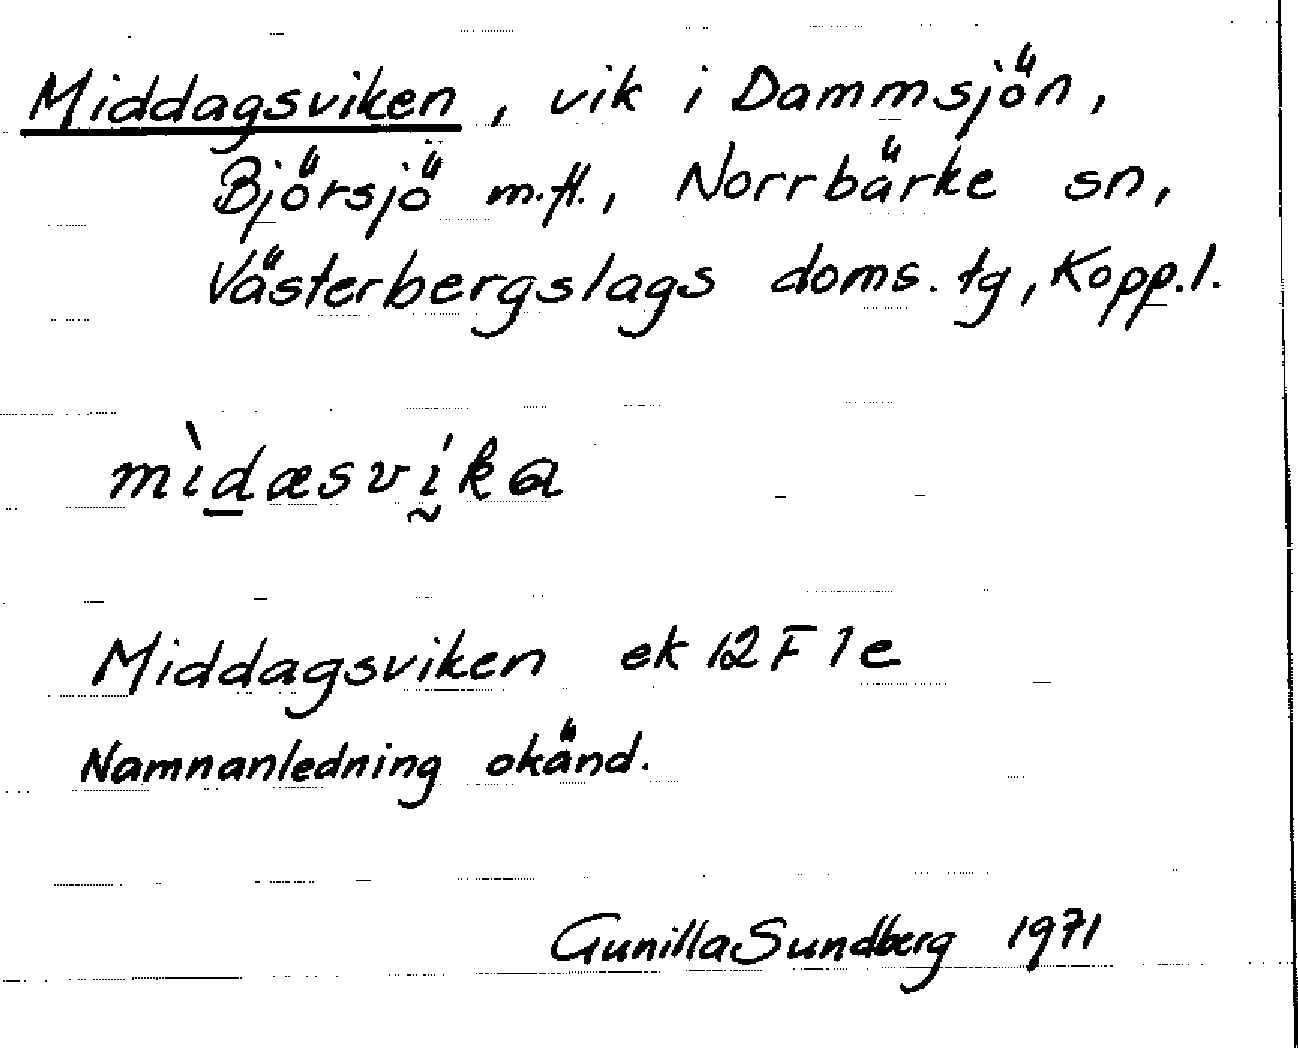 Middagsviken, vik i Dammsjön,
Björsjö m.fl., Norrbärke sn,
Västerbergslags doms. tg, Kopp.l.
mìdæsvíka
Middagsviken ek 12 F 1 e
Namnanledning okänd.
Gunilla Sundberg 1971